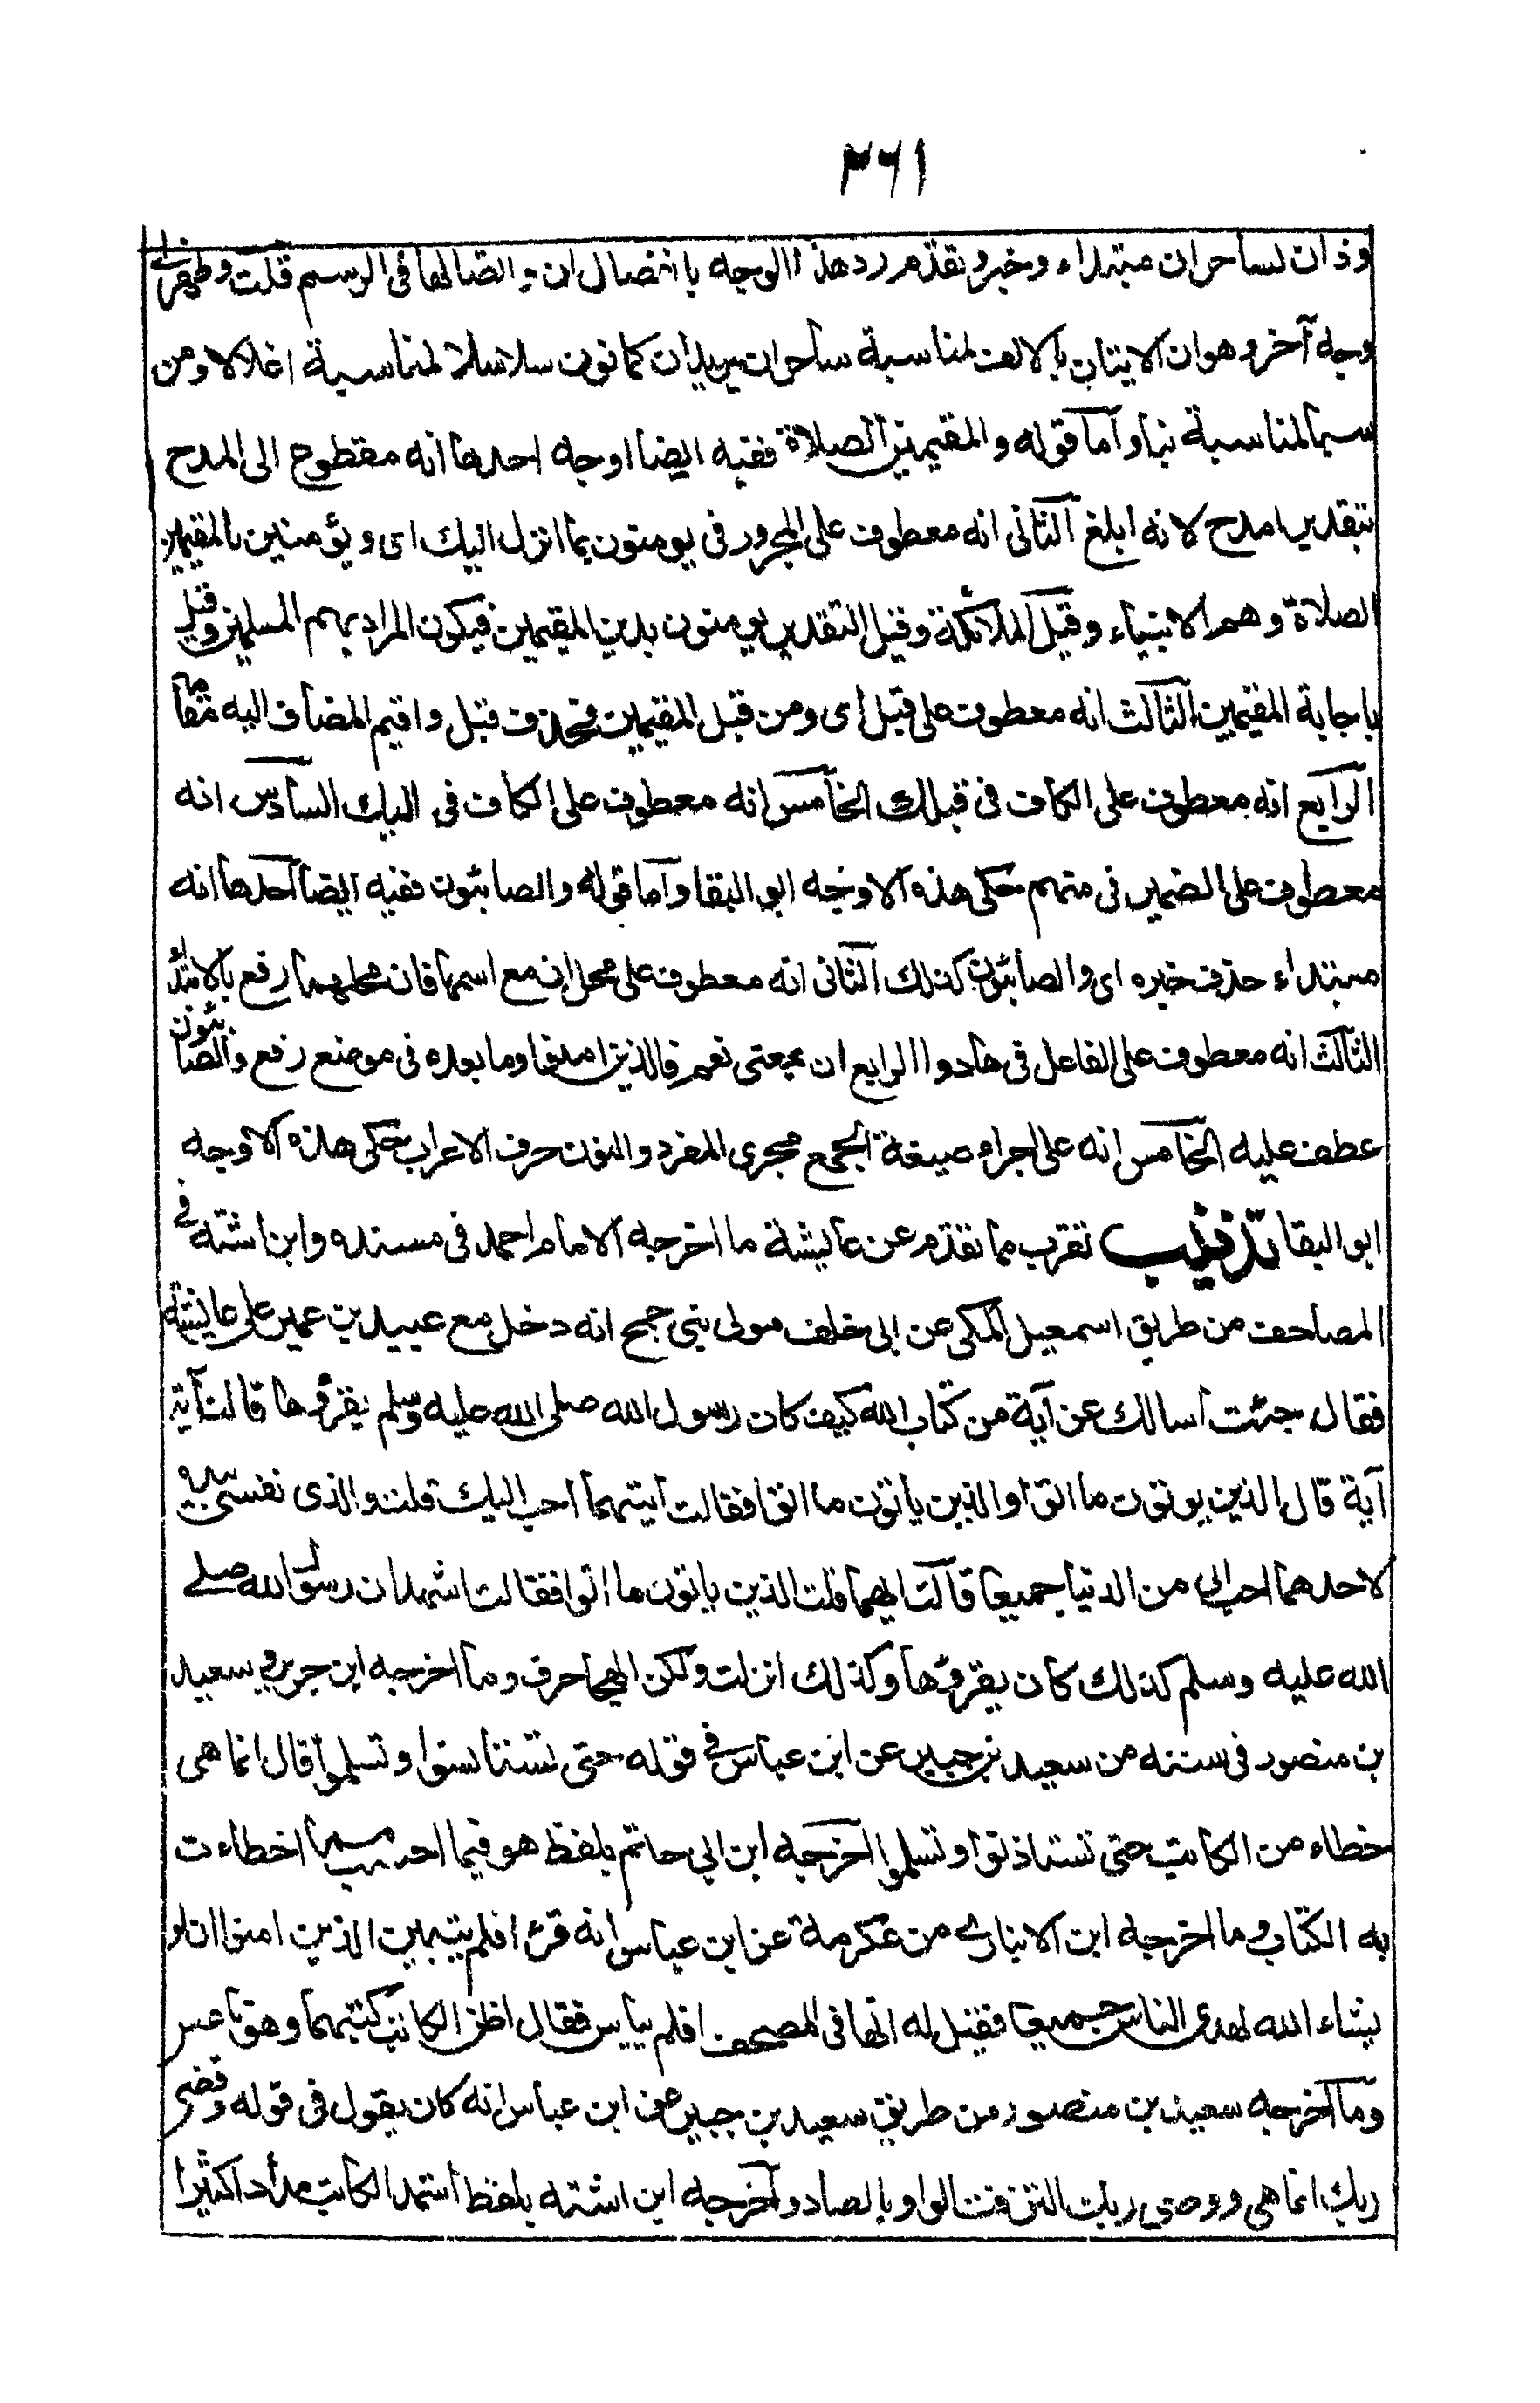 ٣٦١
وذان لساحران مبتداء وخبر وتقدم رد هذا الوجه بانفصال ان واتصالها فى الرسم قلت وظهر لى
وجه آخر وهو ان الاتيان بالالف لمناسبة ساحران يريدان كما نون سلاسلا لمناسبة اغلالا ومن
سبا لمناسبة نبا واما قوله والمقيمين الصلاة ففيه ايضا اوجه احدها انه مقطوع الى المدح
بتقدير امدح لانه ابلغ الثانى انه معطوف على المجرور فى يومنون بما انزل اليك اى ويؤمنين بالمقيمين
الصلاة وهم الانبياء وقيل الملائكة وقيل التقدير يومنون بدين المقيمين فيكون المراد بهم المسلمين وقيل
باجابة المقيمين الثالث انه معطوف على قبل اى ومن قبل المقيمين فحذف قبل واقيم المضاف اليه مقامه
الرابع انه معطوف على الكاف فى قبلك الخامس انه معطوف على الكاف فى اليك السادس انه
معطوف على الضمير فى منهم حكى هذه الاوجه ابو البقا واما قوله والصابئون ففيه ايضا احدها انه
مبتداء حذف خبره اى والصابئون كذلك الثانى انه معطوف على محل ان مع اسمها فان محلهما رفع بالابتدا
الثالث انه معطوف على الفاعل فى هادوا الرابع ان بمعنى نعم فالذين امنوا وما بعده فى موضع رفع والصابئون
عطف عليه الخامس انه على اجراء صيغة الجمع مجرى المفرد والنون حرف الاعراب حكى هذه الاوجه
ابو البقا تذنيب تقرب مما تقدم عن عايشة ما اخرجه الامام احمد فى مسنده وابن اشته فى
المصاحف من طريق اسمعيل المكى عن ابى خلف مولى بنى جمح انه دخل مع عبيد بن عمير على عايشة
فقال جئت اسالك عن آية من كتاب الله كيف كان رسول الله صلى الله عليه وسلم يقرؤها قالت آية
آية قال الذين يوتون ما اتوا والذين ياتون ما اتوا فقالت ايتهما احب اليك قلت والذى نفسى بيده
لاحدهما احب الى من الدنيا جميعا قالت ايهما قلت الذين ياتون ما اتوا فقالت اشهد ان رسول الله صلى
الله عليه وسلم كذلك كان يقرؤها وكذلك انزلت ولكن الهجا حرف وما اخرجه ابن جرير وسعيد
بن منصور فى سننه من سعيد بن جبير عن ابن عباس فى قوله حتى تستانسوا وتسلموا قال انما هى
خطاء من الكاتب حتى تستاذنوا وتسلموا اخرجه ابن ابى حاتم بلفظ هو فيما احسب مما اخطاءت
به الكتاب وما اخرجه ابن الانبارى من عكرمة عن ابن عباس انه قرء افلم يتبين الذين امنوا ان لو
يشاء الله لهدى الناس جميعا فقيل له انها فى المصحف افلم ييايس فقال اظن الكاتب كتبهما وهو ناعس
وما اخرجه سعيد بن منصور من طريق سعيد بن جبير عن ابن عباس انه كان يقول فى قوله وقضى
ربك انما هى ووصى ربك التزقت الواو بالصاد واخرجه ابن اشته بلفظ استمد الكاتب مدادا كثيرا